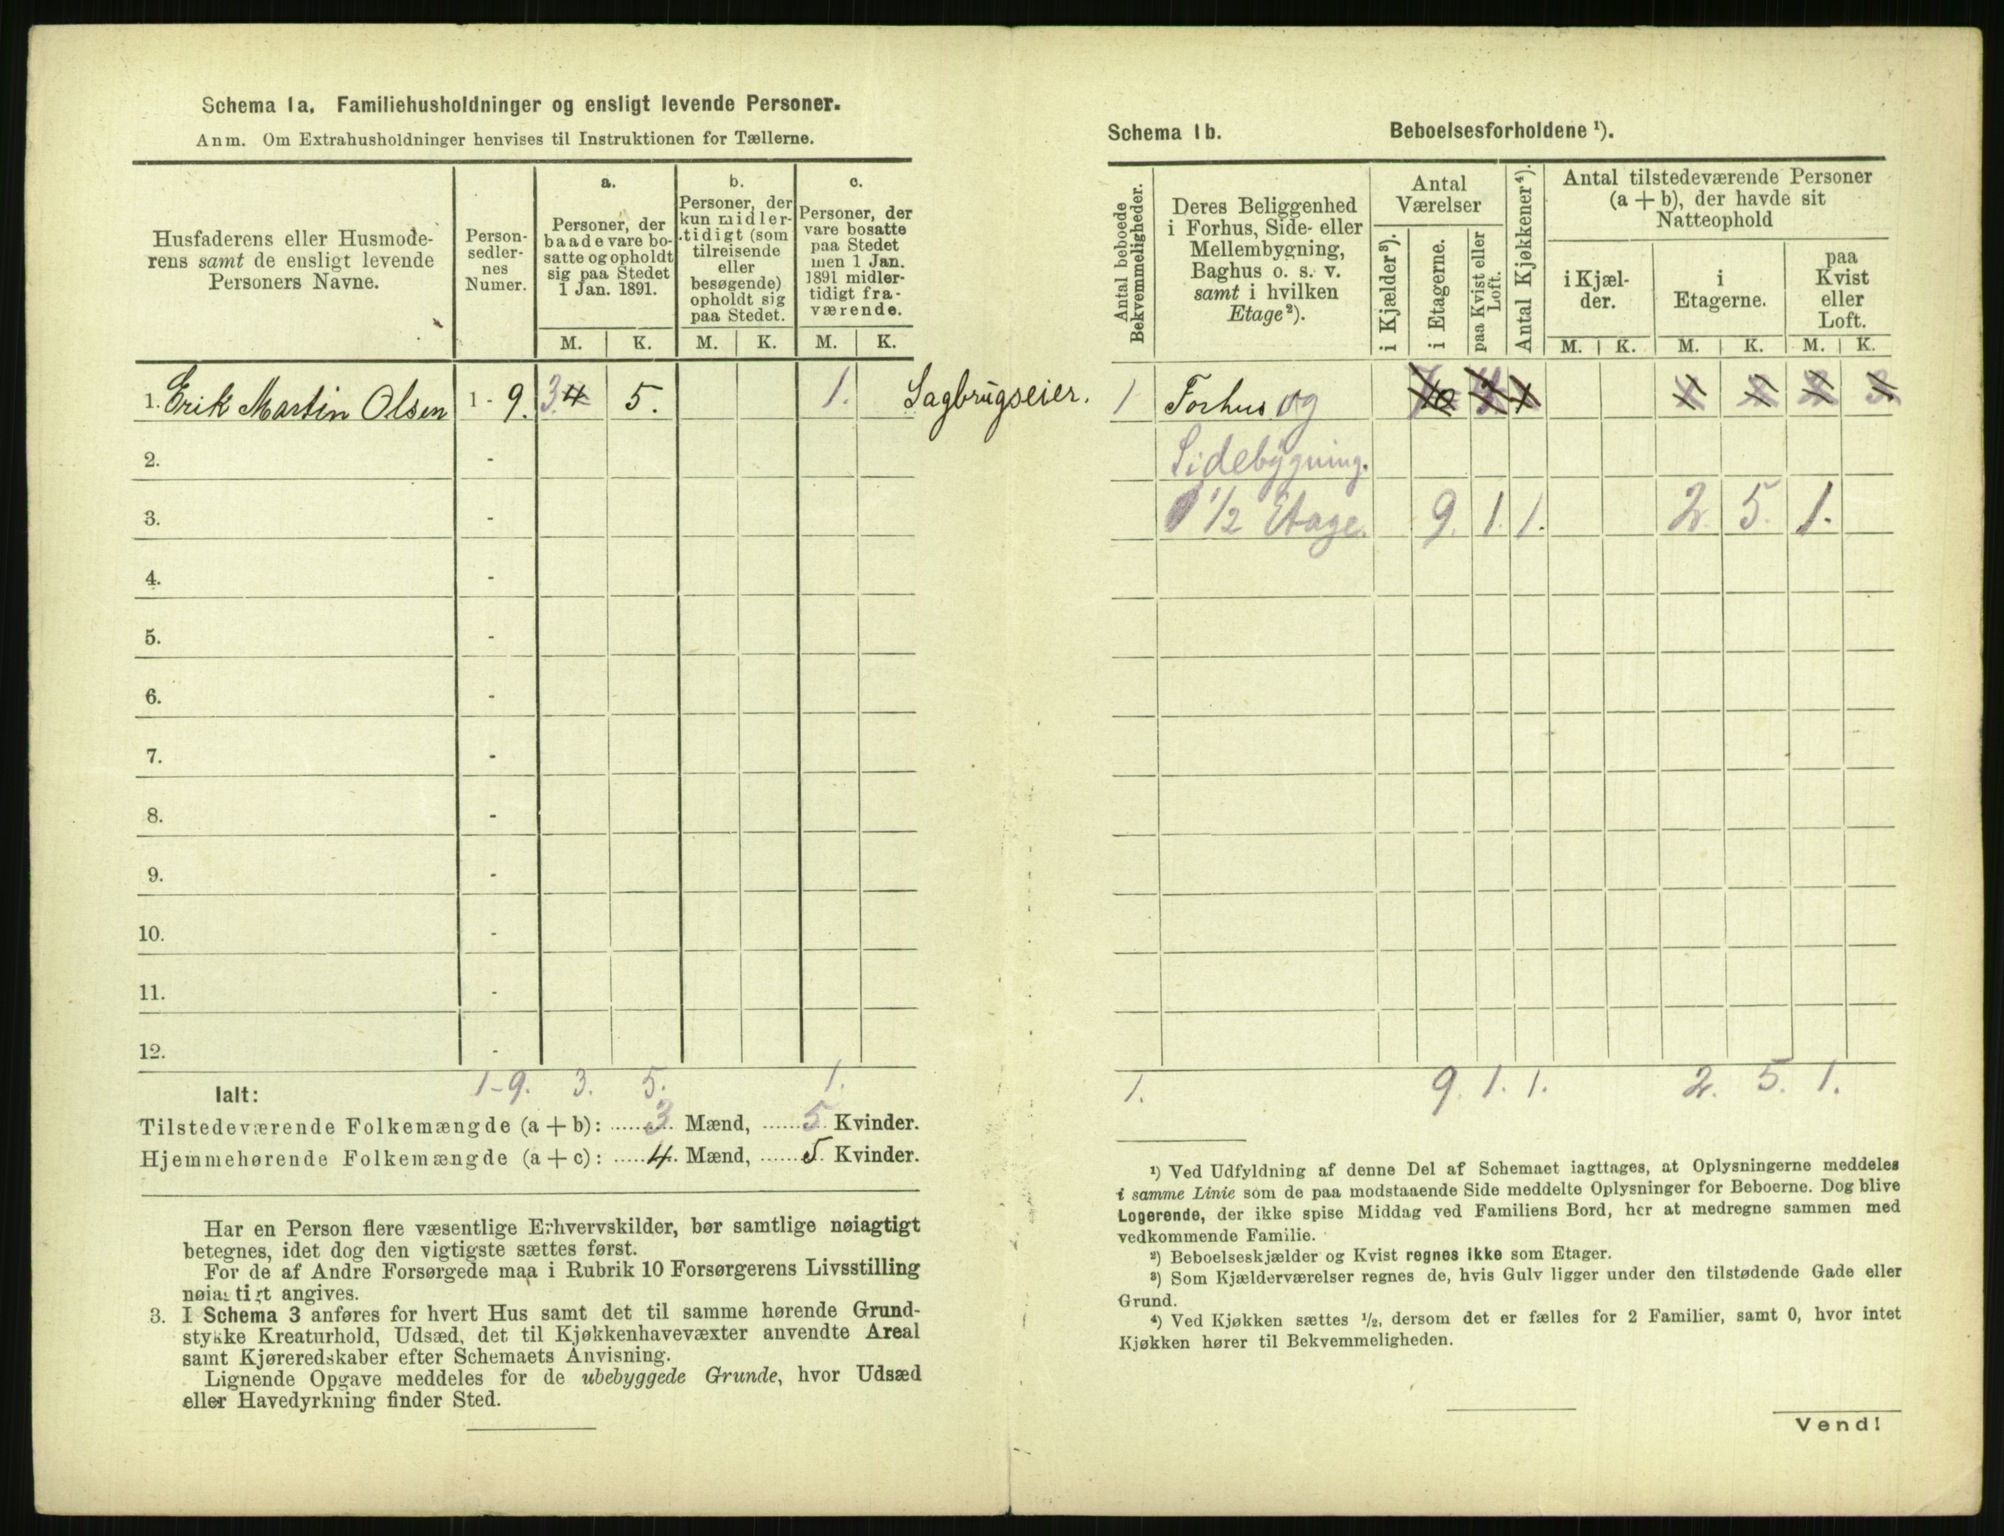 Schema 1a. Familiehusholdninger og ensligt levende Personer.
Anm. Om Extrahusholdninger henvises til Instruktionen for Tællerne.
Husfaderens eller Husmode-
rens samt de ensligt levende
Personers Navne.
Person-
sedler-
nes
Numer.
a.
Personer, der
baade vare bo-
satte og opholdt
sig paa Stedet
1 Jan. 1891.
b.
Personer, der
kun midler-
tidigt (som
tilreisende
eller
besøgende)
opholdt sig
paa Stedet.
c.
Personer, der
vare bosatte
paa Stedet
men 1 Jan.
1891 midler-
tidigt fra-
værende.
M. K. M. K. M. K.
1. Erik Martin Olsen 1 - 9. 3. 4 5. 1. Sagbrugseier.
2. -
3. -
4. -
5. -
6. -
7. -
8. -
9. -
10. -
11. -
12. -
Ialt: 1-9. 3. 5. 1.
Tilstedeværende Folkemængde (a + b): 3 Mænd, 5 Kvinder.
Hjemmehørende Folkemængde (a + c): 4. Mænd, 5 Kvinder.
Har en Person flere væsentlige Erhvervskilder, bør samtlige nøiagtigt
betegnes, idet dog den vigtigste sættes først.
For de af Andre Forsørgede maa i Rubrik 10 Forsørgerens Livsstilling
nøiagtigt angives.
3. I Schema 3 anføres for hvert Hus samt det til samme hørende Grund-
stykke Kreaturhold, Udsæd, det til Kjøkkenhavevæxter anvendte Areal
samt Kjøreredskaber efter Schemaets Anvisning.
Lignende Opgave meddeles for de ubebyggede Grunde, hvor Udsæd
eller Havedyrkning finder Sted.
Schema 1b. Beboelsesforholdene ¹).
Antal beboede
Bekvemmeligheder.
Deres Beliggenhed
i Forhus, Side- eller
Mellembygning,
Baghus o. s. v.
samt i hvilken
Etage²).
Antal
Værelser
i Kjælder³).
i Etagerne.
paa Kvist eller
Loft.
Antal Kjøkkener⁴).
Antal tilstedeværende Personer
(a + b), der havde sit
Natteophold
i Kjæl-
der.
i
Etagerne.
paa
Kvist
eller
Loft.
M. K. M. K. M. K.
1 Forhus og
Sidebygning.
1 1/2 Etage. 9. 1. 1. 2. 5. 1.
1. 9. 1. 1. 2. 5. 1.
¹) Ved Udfyldning af denne Del af Schemaet iagttages, at Oplysningerne meddeles
i samme Linie som de paa modstaaende Side meddelte Oplysninger for Beboerne. Dog blive
Logerende, der ikke spise Middag ved Familiens Bord, her at medregne sammen med
vedkommende Familie.
²) Beboelseskjælder og Kvist regnes ikke som Etager.
³) Som Kjælderværelser regnes de, hvis Gulv ligger under den tilstødende Gade eller
Grund.
⁴) Ved Kjøkken sættes ¹/₂, dersom det er fælles for 2 Familier, samt 0, hvor intet
Kjøkken hører til Bekvemmeligheden.
Vend!